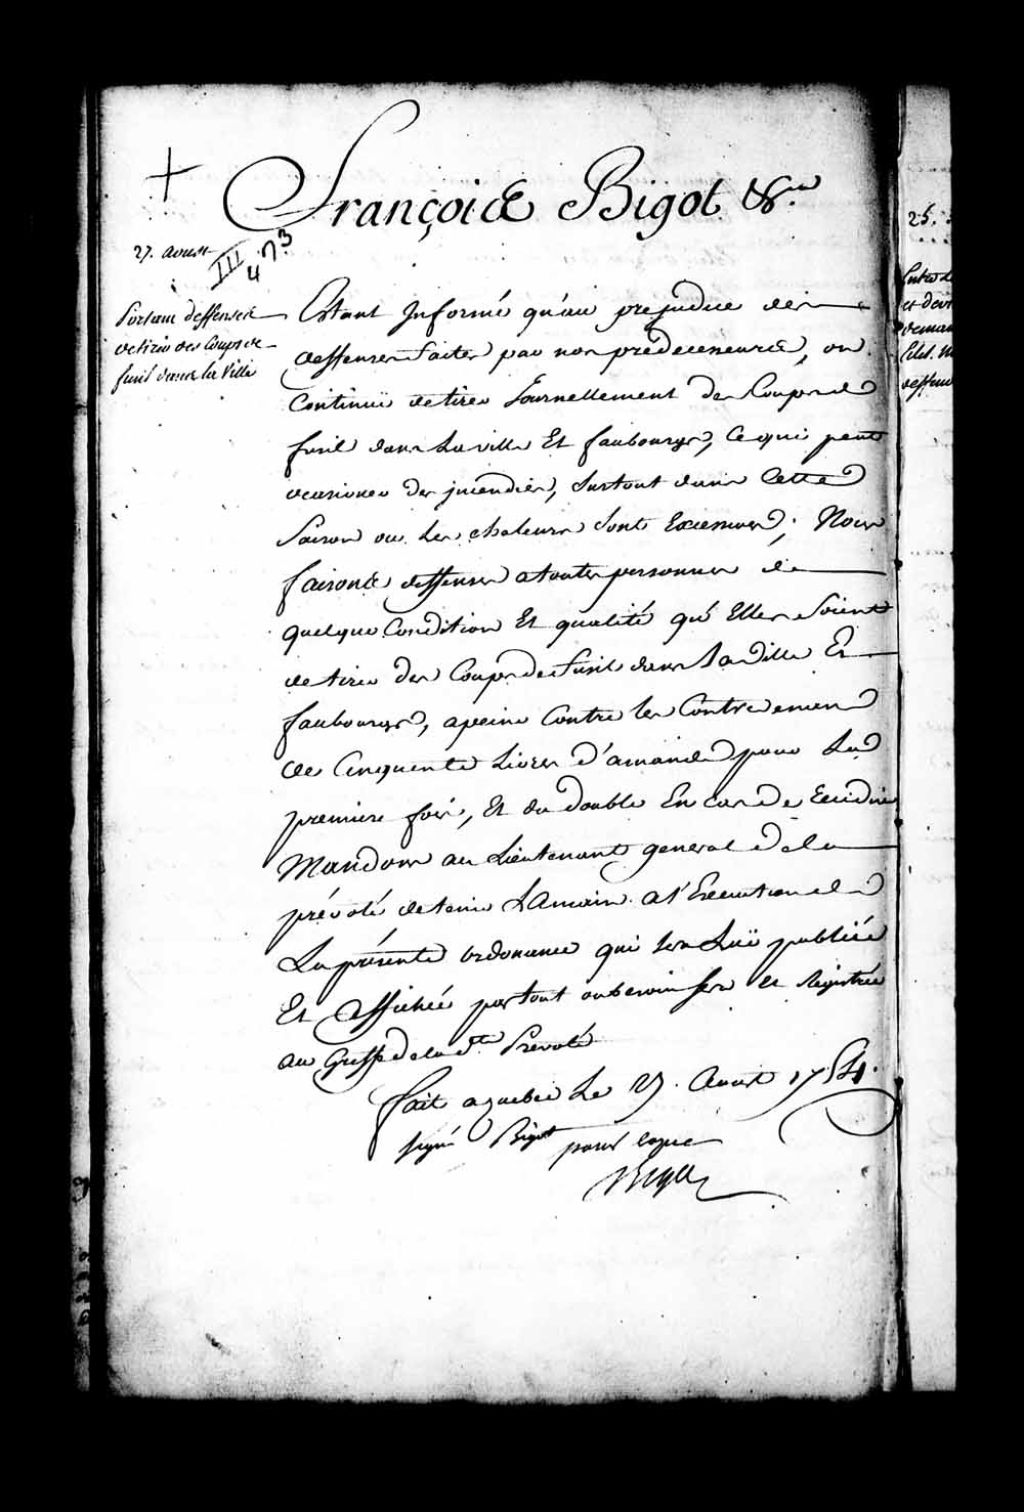 François Bigot &.ra
27. aoust
III
473
Portant deffenses
de tirer des Coups de
fusil dans la Ville
Estant Informé qu'au prejudice des
deffenses faites par nos predecesseurs, on
Continüe de tirer Journellement des Coups de
fusil dans La ville Et faubourgs, Ce qui peut
occasionner des jncendies, Surtout dans Cette
Saison ou Les chaleurs Sont Excessives; Nous
faisons deffenses a toutes personnes de
quelque Condition Et qualité qu'Elles Soient
de tirer des Coups de fusil dans La Ville Et
faubourgs, a peine Contre les Contrevenans
de Cinquante Livres d'amande pour La
premiere fois, Et du double En cas de Recidive
Mandons au Lieutenant general de la
prévoté de tenir La main a l'Execution de
La présente ordonance qui sera Luë publiée
Et affichée partout ou besoin sera Et Registrée
au Greffe de lad.te Prevoté
fait a quebec Le 27. Aoust 1754.
signé Bigot pour copie
Bigot
25.